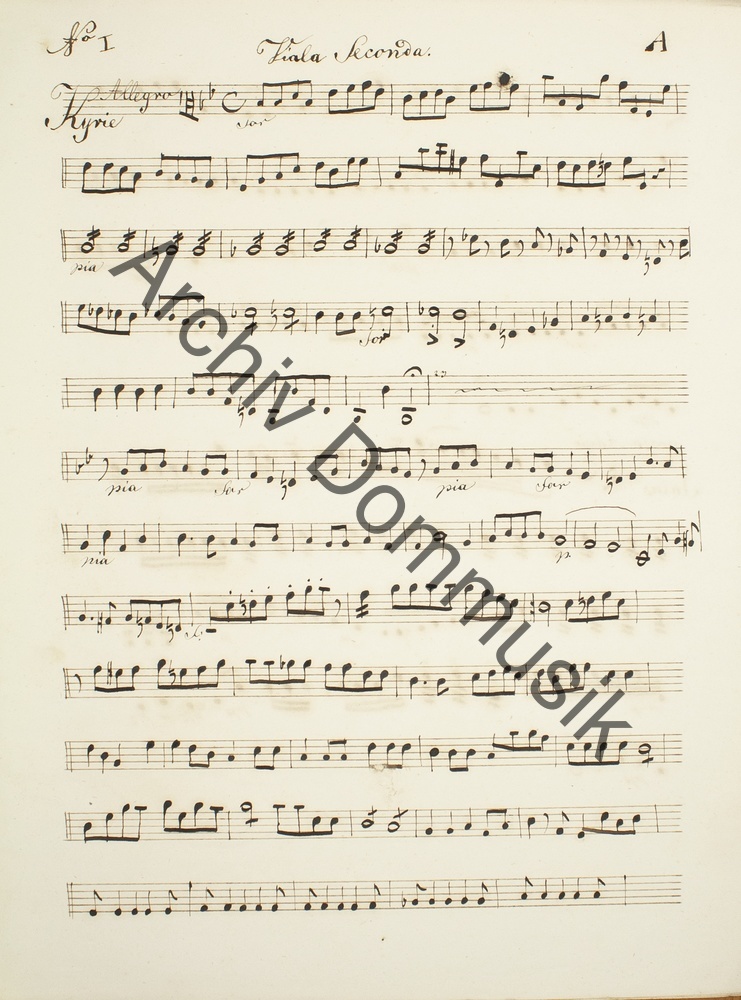 No I
Viola Seconda.
A
Allegro
Kyrie
for
pia
for
pia for pia for
pia p
Archiv Dommusik